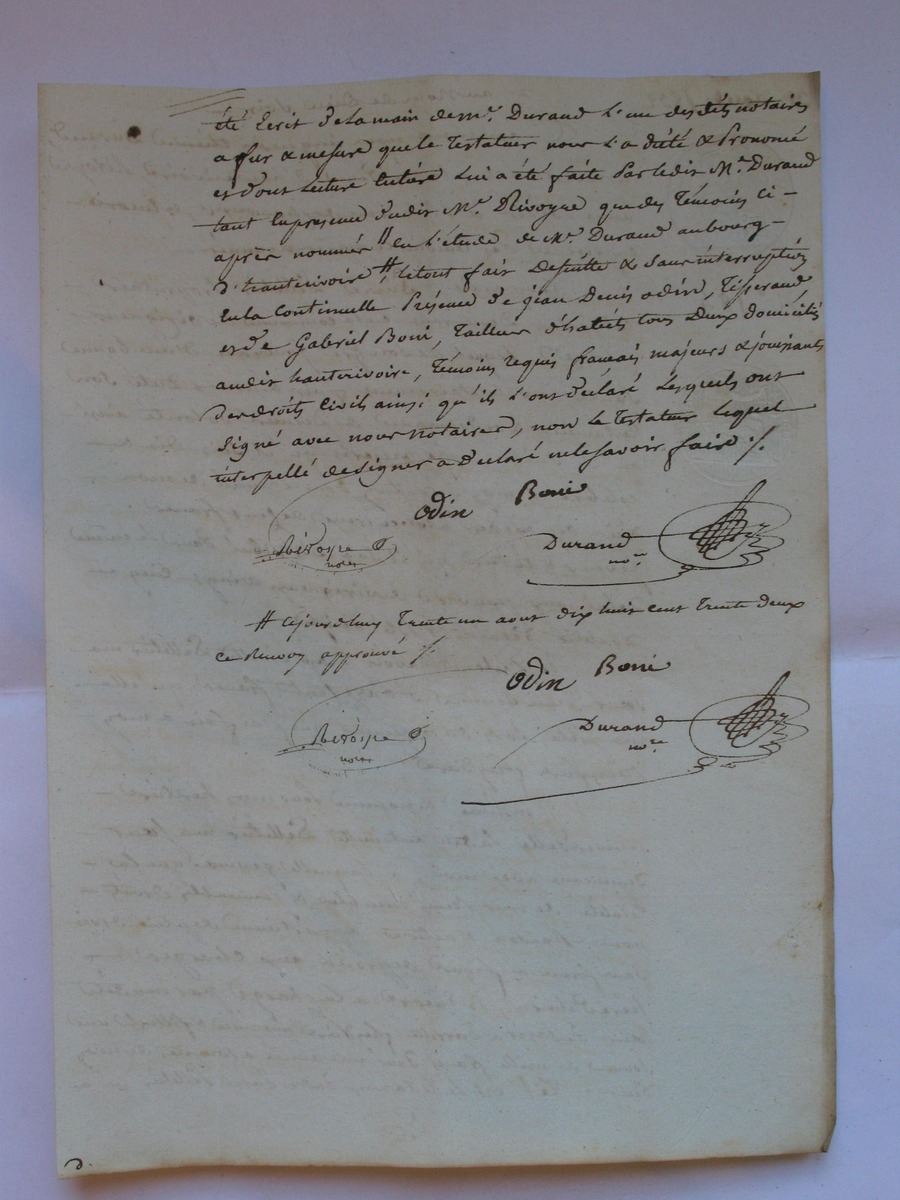 été Ecrit de la main de me. Durand l'un desdits notaires
a fur & mesure que le Testateur nous l'a dicté & Prononcé
et dont Lecture Entière Lui a été faite Par ledit Me. Durand
tant En présence dudit Me. Rivoyre que des Témoins ci-
après nommés // En L'étude de Me. Durand au bourg-
d'hauterivoire // le tout fait De suitte & sans interruption
En la Continuelle Présence de jean Denis odin, Tisserand,
et de Gabriel Boni, Tailleur d'habits tous Deux domiciliés
audit hauterivoire, Témoins requis français majeurs & jouissants
Des droits Civils ainsi qu'ils L'ont Déclaré Lesquels ont
Signé avec nous notaires, non le Testateur lequel
interpellé de signer a Déclaré ne le savoir faire ./.
odin Boni
Rivoyre Durand
nore. nore.
// cejourdhuy Trente un aout dix huit cent Trente deux
Ce Renvoy approuvé ./.
odin Boni
Rivoyre Durand
nore. nore.